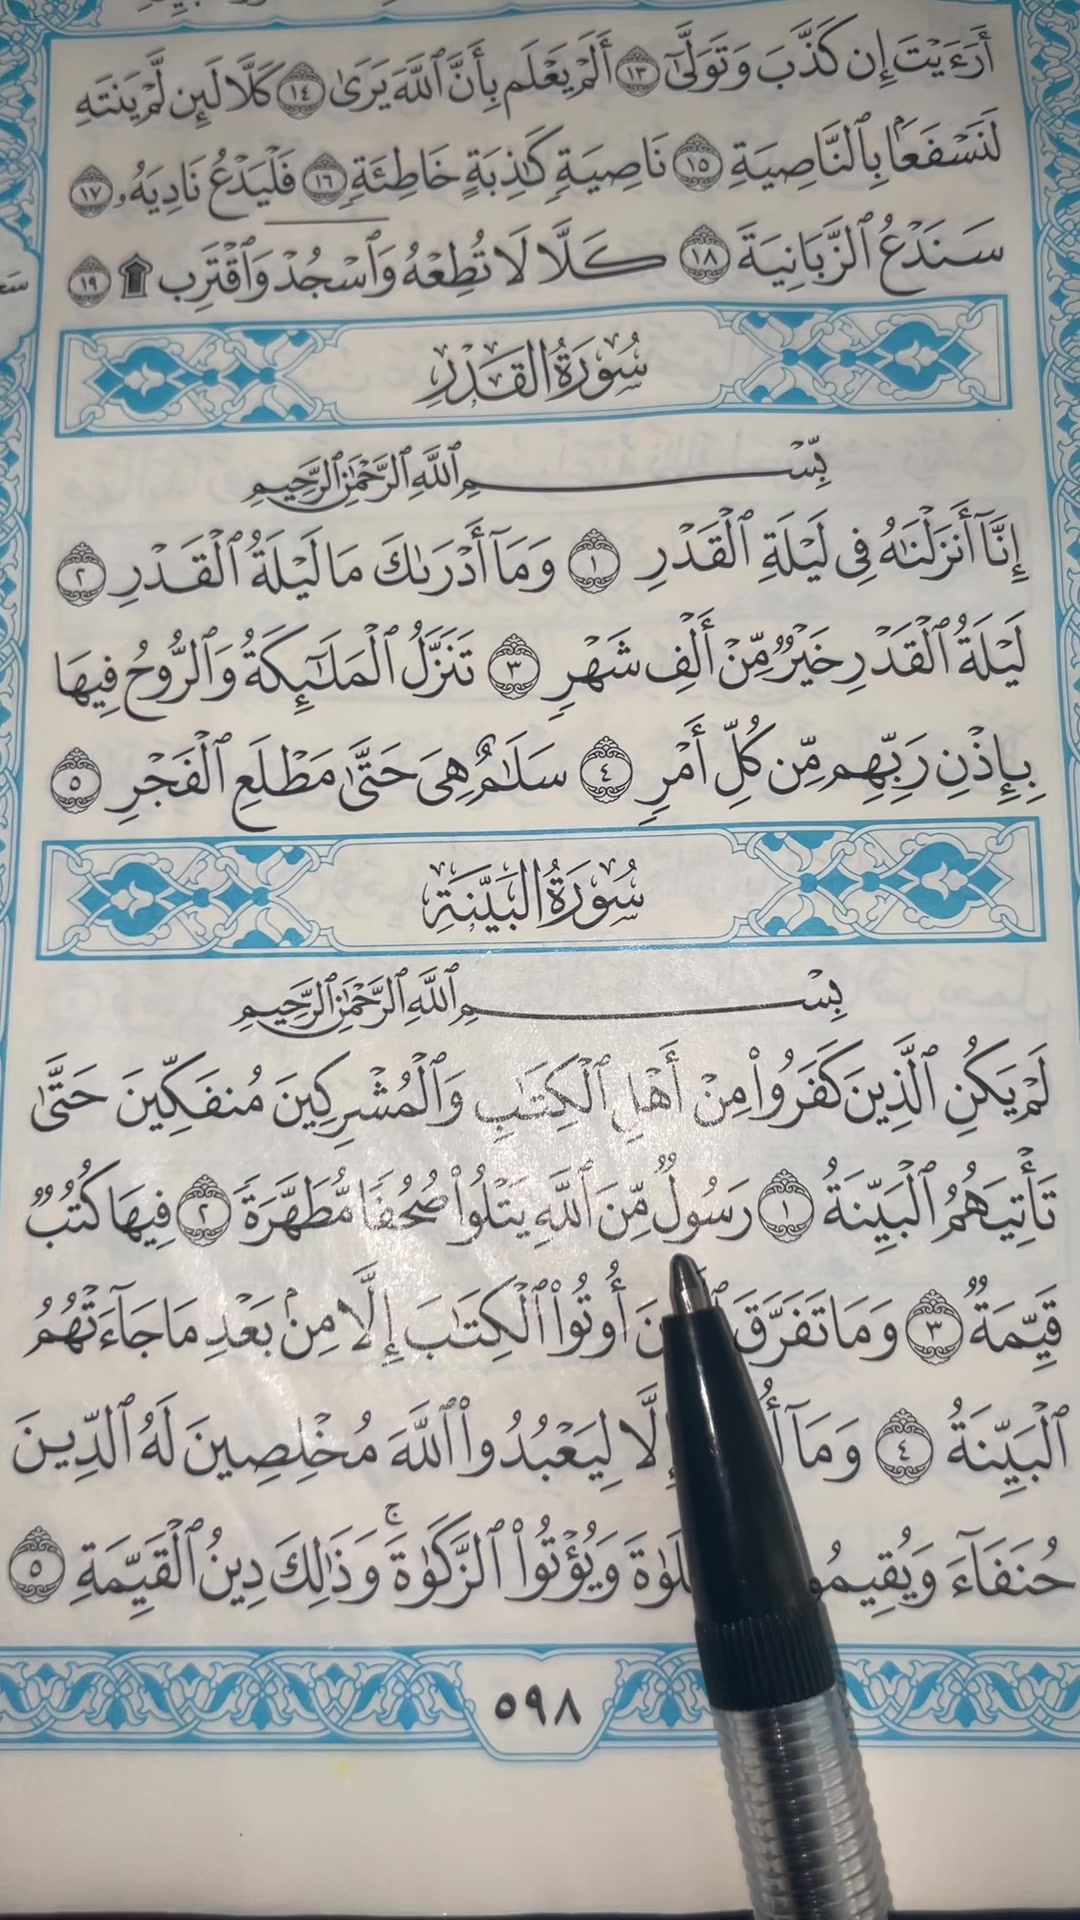 أَرَءَيْتَ إِن كَذَّبَ وَتَوَلَّىٰٓ ١٣ أَلَمْ يَعْلَم بِأَنَّ ٱللَّهَ يَرَىٰ ١٤ كَلَّا لَئِن لَّمْ يَنتَهِ
لَنَسْفَعًۢا بِٱلنَّاصِيَةِ ١٥ نَاصِيَةٍ كَٰذِبَةٍ خَاطِئَةٍ ١٦ فَلْيَدْعُ نَادِيَهُۥ ١٧
سَنَدْعُ ٱلزَّبَانِيَةَ ١٨ كَلَّا لَا تُطِعْهُ وَٱسْجُدْ وَٱقْتَرِب ۩ ١٩
سُورَةُ الْقَدْرِ
بِسْمِ ٱللَّهِ ٱلرَّحْمَٰنِ ٱلرَّحِيمِ
إِنَّآ أَنزَلْنَٰهُ فِى لَيْلَةِ ٱلْقَدْرِ ١ وَمَآ أَدْرَىٰكَ مَا لَيْلَةُ ٱلْقَدْرِ ٢
لَيْلَةُ ٱلْقَدْرِ خَيْرٌ مِّنْ أَلْفِ شَهْرٍ ٣ تَنَزَّلُ ٱلْمَلَٰٓئِكَةُ وَٱلرُّوحُ فِيهَا
بِإِذْنِ رَبِّهِم مِّن كُلِّ أَمْرٍ ٤ سَلَٰمٌ هِىَ حَتَّىٰ مَطْلَعِ ٱلْفَجْرِ ٥
سُورَةُ الْبَيِّنَةِ
بِسْمِ ٱللَّهِ ٱلرَّحْمَٰنِ ٱلرَّحِيمِ
لَمْ يَكُنِ ٱلَّذِينَ كَفَرُوا۟ مِنْ أَهْلِ ٱلْكِتَٰبِ وَٱلْمُشْرِكِينَ مُنفَكِّينَ حَتَّىٰ
تَأْتِيَهُمُ ٱلْبَيِّنَةُ ١ رَسُولٌ مِّنَ ٱللَّهِ يَتْلُوا۟ صُحُفًا مُّطَهَّرَةً ٢ فِيهَا كُتُبٌ
قَيِّمَةٌ ٣ وَمَا تَفَرَّقَ أُوتُوا۟ ٱلْكِتَٰبَ إِلَّا مِنۢ بَعْدِ مَا جَآءَتْهُمُ
ٱلْبَيِّنَةُ ٤ وَمَآ إِلَّا لِيَعْبُدُوا۟ ٱللَّهَ مُخْلِصِينَ لَهُ ٱلدِّينَ
حُنَفَآءَ وَيُقِيمُوا۟ وَيُؤْتُوا۟ ٱلزَّكَوٰةَ ۚ وَذَٰلِكَ دِينُ ٱلْقَيِّمَةِ ٥
٥٩٨